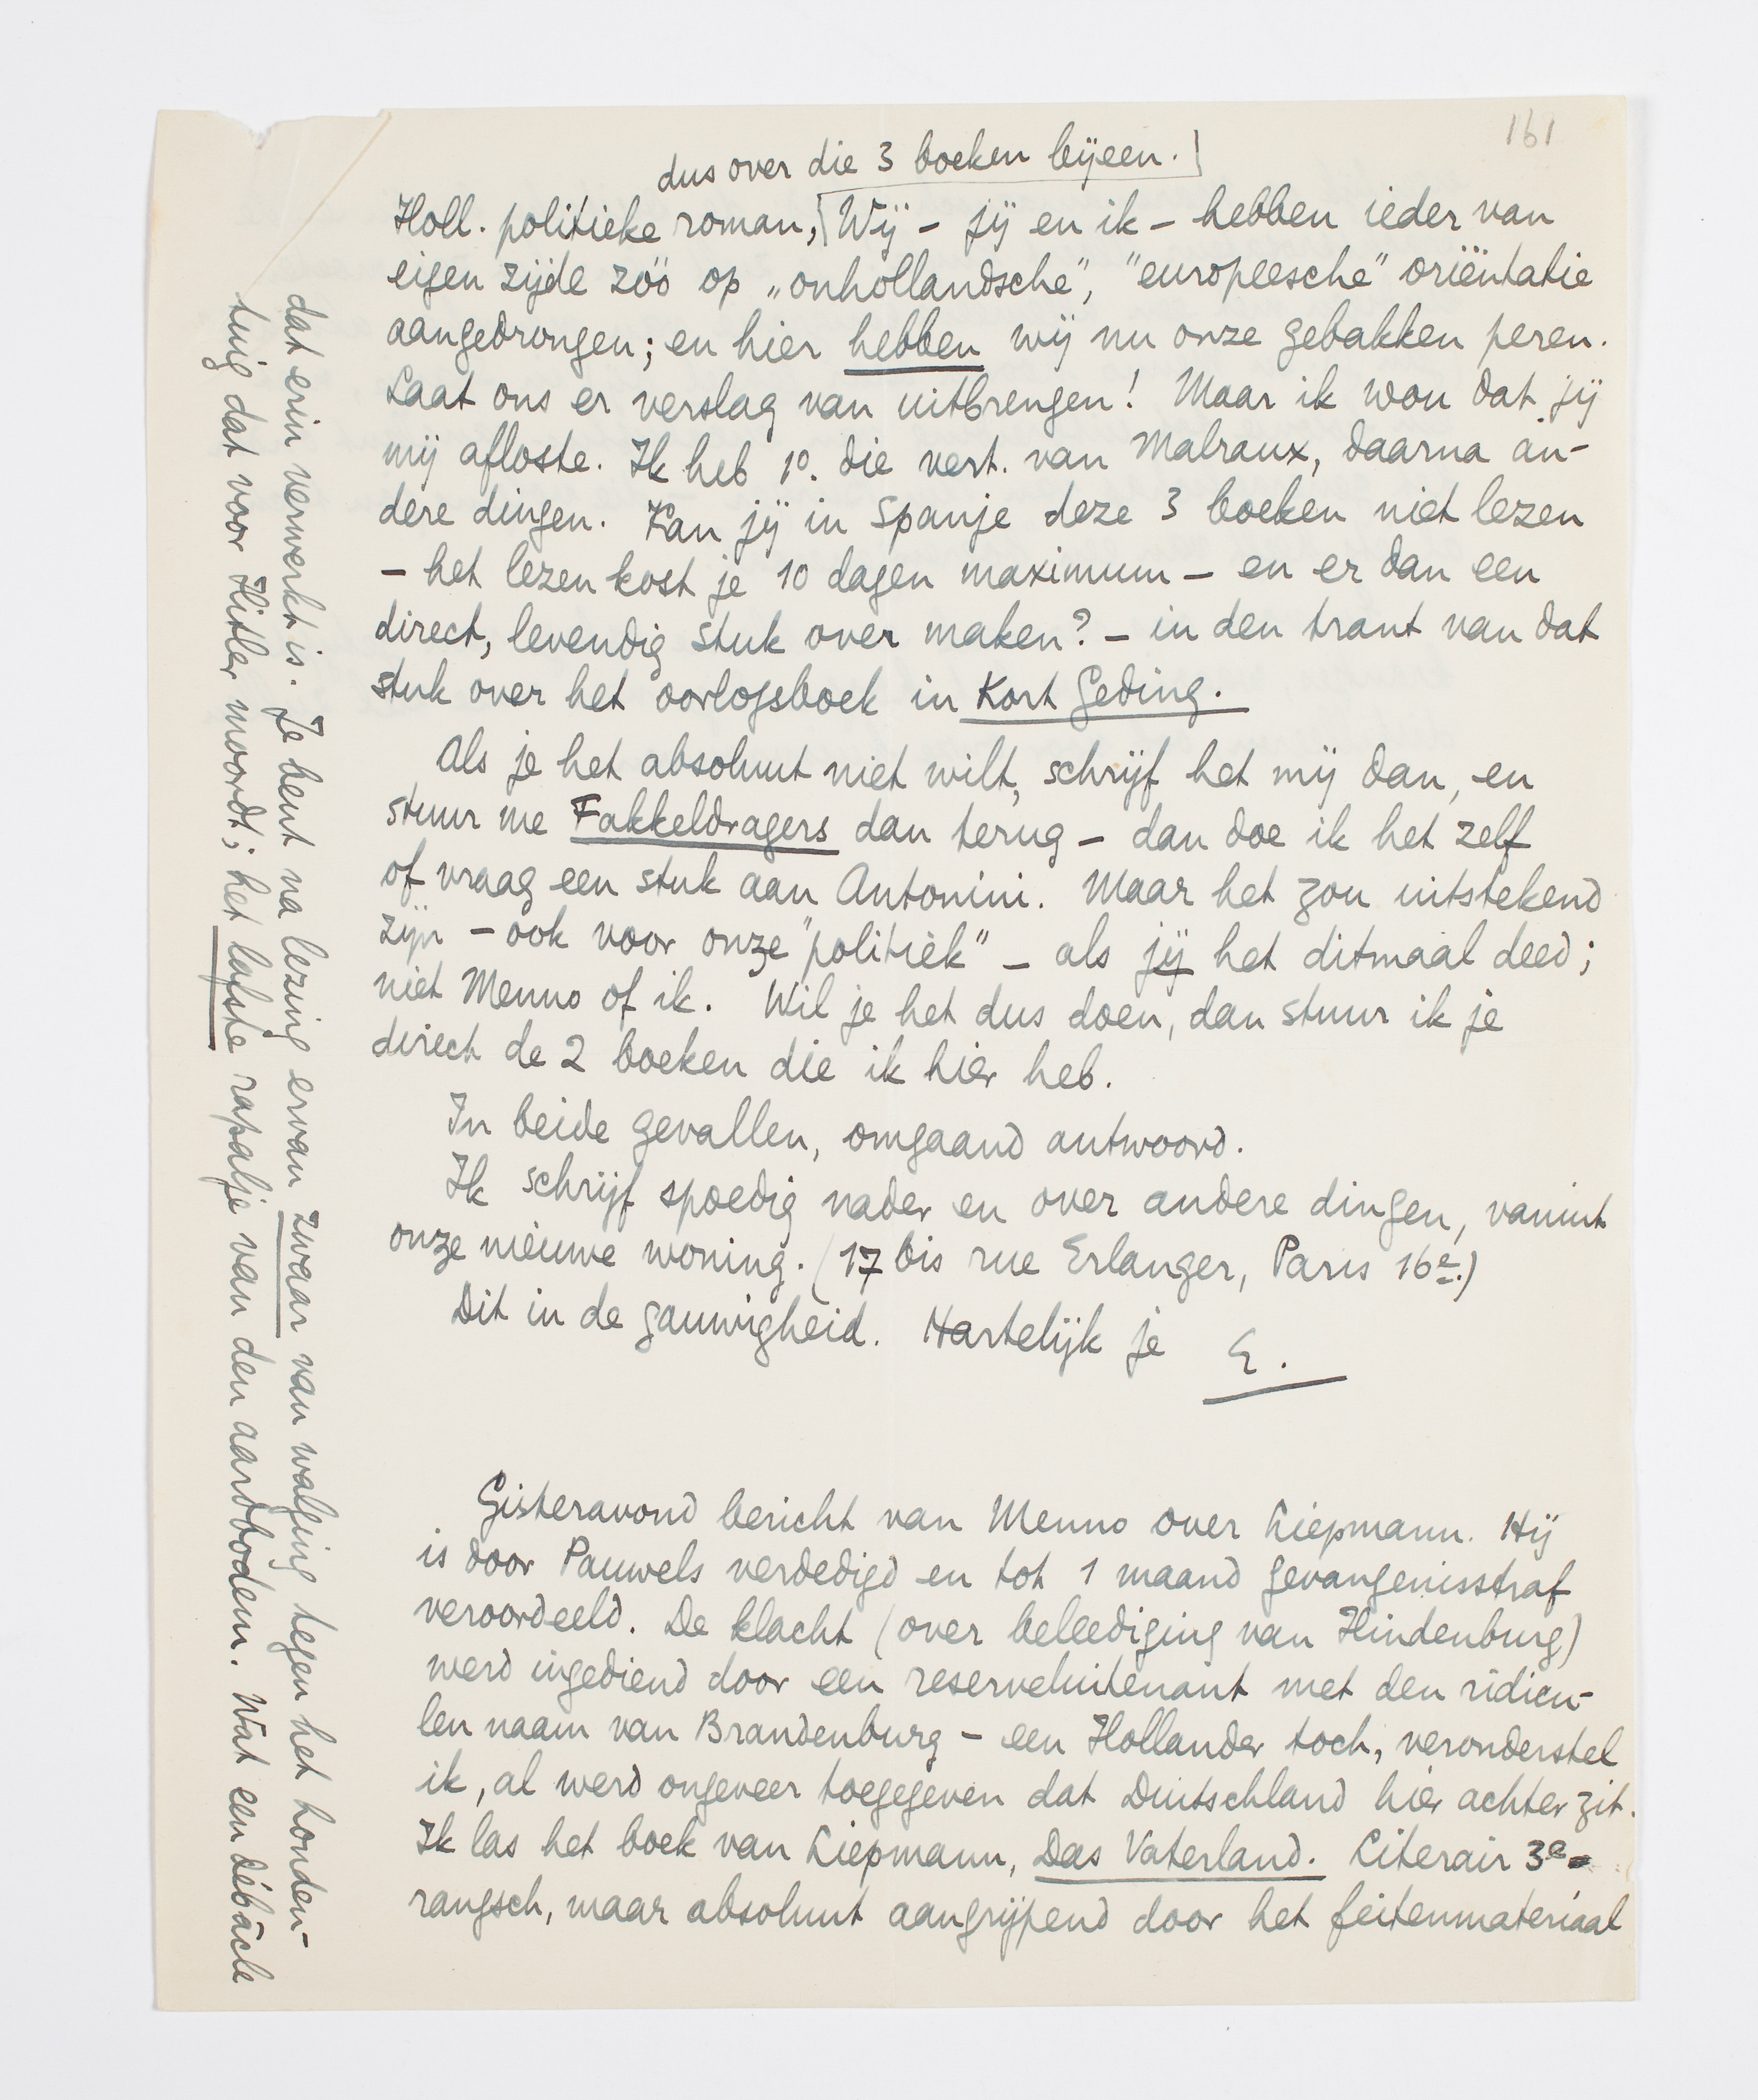 161
dus over die 3 boeken bijeen.
Holl. politieke roman, Wij – jij en ik – hebben ieder van
eigen zijde zóó op „onhollandsche", "europeesche" oriëntatie
aangedrongen; en hier hebben wij nu onze gebakken peren.
Laat ons er verslag van uitbrengen! Maar ik wou dat jij
mij afloste. Ik heb 1º. die vert. van Malraux, daarna an-
dere dingen. Kan jij in Spanje deze 3 boeken niet lezen
– het lezen kost je 10 dagen maximum – en er dan een
direct, levendig stuk over maken? – in den trant van dat
stuk over het oorlogsboek in Kort Geding.
Als je het absoluut niet wilt, schrijf het mij dan, en
stuur me Fakkeldragers dan terug – dan doe ik het zelf
of vraag een stuk aan Antonini. Maar het zou uitstekend
zijn – ook voor onze "politiek" – als jij het ditmaal deed;
niet Menno of ik. Wil je het dus doen, dan stuur ik je
direct de 2 boeken die ik hier heb.
In beide gevallen, omgaand antwoord.
Ik schrijf spoedig nader en over andere dingen, vanuit
onze nieuwe woning. (17 bis rue Erlanger, Paris 16e.)
Dit in de gauwigheid. Hartelijk je E.
Gisteravond bericht van Menno over Liepmann. Hij
is door Pauwels verdedigd en tot 1 maand gevangenisstraf
veroordeeld. De klacht (over beleediging van Hindenburg)
werd ingediend door een reserveluitenant met den ridicu-
len naam van Brandenburg – een Hollander toch, veronderstel
ik, al werd ongeveer toegegeven dat Duitschland hier achter zit.
Ik las het boek van Liepmann, Das Vaterland. Literair 3e-
rangsch, maar absoluut aangrijpend door het feitenmateriaal
dat erin verwerkt is. Je bent na lezing ervan zwaar van walging tegen het honden-
tuig dat voor Hitler moordt; het lafste rapalje van den aardbodem. Wat een débâcle